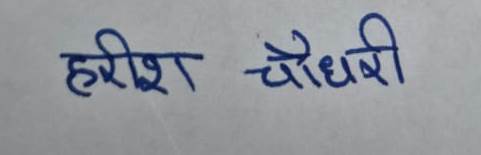 हरीश चौधरी